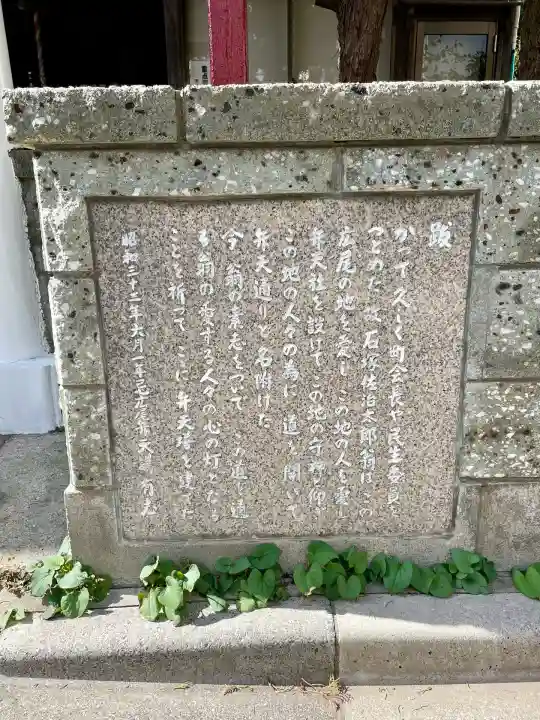 跋
かつて久しく町会長や民生委員を
つとめた故石塚佐治太郎翁は、この
広尾の地を愛し、この地の人を愛し
弁天社を設けて、この地の守神と仰ぎ
この地の人々の為に道を開いて
弁天通りと名附けた
今、翁の素志をついで、この道を通
る翁の愛する人々の心の灯となら
ことを祈って、ここに弁天塔を建てた
昭和三十二年六月 弁天講有志